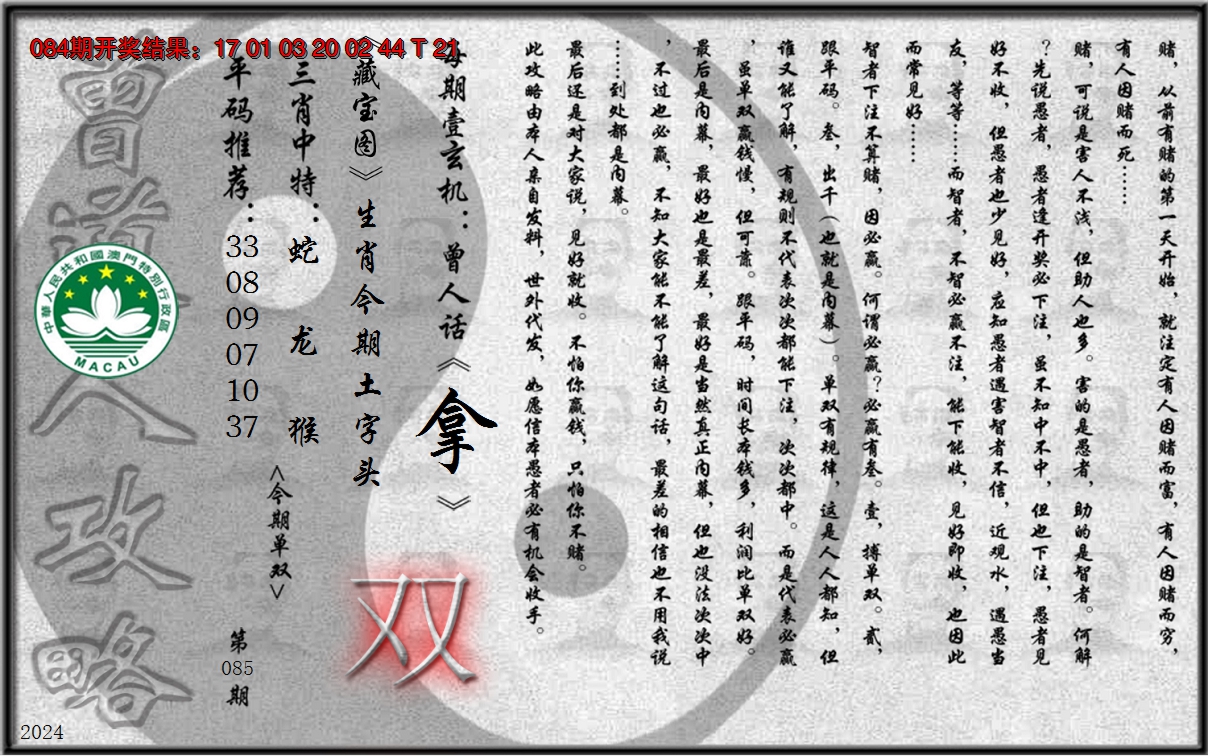 084期开奖结果：17 01 03 20 02 44 T 21
赌，从前有赌的第一天开始，就注定有人因赌而富，有人因赌而穷，
有人因赌而死……
赌，可说是害人不浅，但助人也多。害的是愚者，助的是智者。何解
？先说愚者，愚者逢开奖必下注，虽不知中不中，但也下注，愚者见
好不收，但愚者也少见好，应知愚者遇害智者不信，近观水，遇愚当
友，等等……而智者，不智必赢不注，能下能收，见好即收，也因此
而常见好……
智者下注不算赌，因必赢。何谓必赢？必赢有叁。壹，搏单双。贰，
跟平码。叁，出千（也就是内幕）。单双有规律，这是人人都知，但
谁又能了解，有规则不代表次次都能下注，次次都中。而是代表必赢
，虽单双赢钱慢，但可靠。跟平码，时间长本钱多，利润比单双好。
最后是内幕，最好也是最差，最好是当然真正内幕，但也没法次次中
，不过也必赢，不知大家能不能了解这句话，最差的相信也不用我说
……到处都是内幕。
最后还是对大家说，见好就收。不怕你赢钱，只怕你不赌。
此攻略由本人亲自发料，世外代发，如愿信本愚者必有机会收手。
每期壹玄机：曾人话《拿》
《藏宝图》生肖今期土字头
双
三肖中特：蛇 龙 猴
<今期单双>
平码推荐：33 08 09 07 10 37
第085期
曾道人攻略
中華人民共和國澳門特別行政區
MACAU
2024